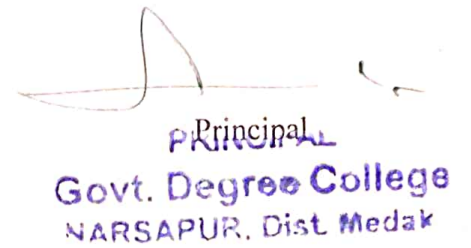 Principal
PRINCIPAL
Govt. Degree College
NARSAPUR, Dist. Medak